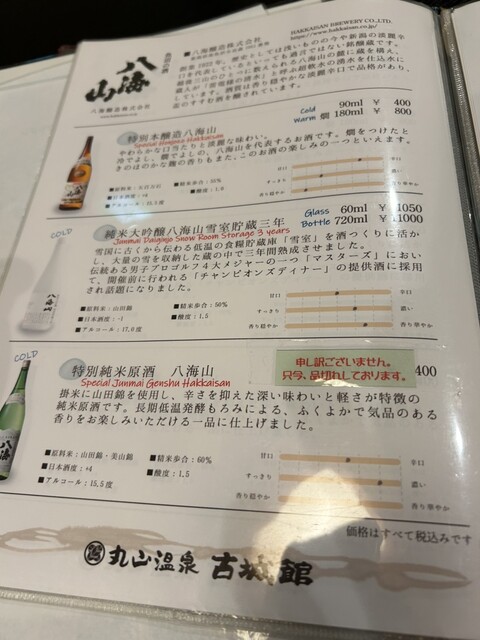 八海山
八海醸造株式会社
■八海醸造株式会社
HAKKAISAN BREWERY CO.,LTD.
https://www.hakkaisan.co.jp
特別本醸造八海山
Special Honjozo Hakkaisan
Cold 90ml ￥ 400
Warm 燗 180ml ￥ 800
やわらかな口当たりと淡麗な味わい。
冷でよし、燗でよしの、八海山を代表するお酒です。燗をつけたと
きのほのかな麹の香りもまた、このお酒の楽しみの一つといえます。
■精米歩合：55%
■アルコール：15.5度
甘口 辛口
すっきり 濃い
香り穏やか 香り華やか
COLD
純米大吟醸八海山雪室貯蔵三年
Junmai Daiginjo Snow Room Storage 3 years
Glass 60ml ￥1050
Bottle 720ml ￥11000
雪国に古くから伝わる低温の食糧貯蔵庫「雪室」を酒づくりに活か
し、大量の雪を収納した蔵の中で三年間熟成させました。
伝統ある男子プロゴルフ4大メジャーの一つ「マスターズ」におい
て、開催前に行われる「チャンピオンズディナー」の提供酒に採用
され話題になりました。
■原料米：山田錦
■精米歩合：50%
■日本酒度：-1
■酸度：1.5
■アルコール：17.0度
甘口 辛口
すっきり 濃い
香り穏やか 香り華やか
COLD
特別純米原酒 八海山
Special Junmai Genshu Hakkaisan
申し訳ございません。
只今、品切れしております。
400
掛米に山田錦を使用し、辛さを抑えた深い味わいと軽さが特徴の
純米原酒です。長期低温発酵もろみによる、ふくよかで気品のある
香りをお楽しみいただける一品に仕上げました。
■原料米：山田錦・美山錦
■精米歩合：60%
■日本酒度：+4
■酸度：1.5
■アルコール：15.5度
甘口 辛口
すっきり 濃い
香り穏やか 香り華やか
価格はすべて税込みです
丸山温泉 古城館